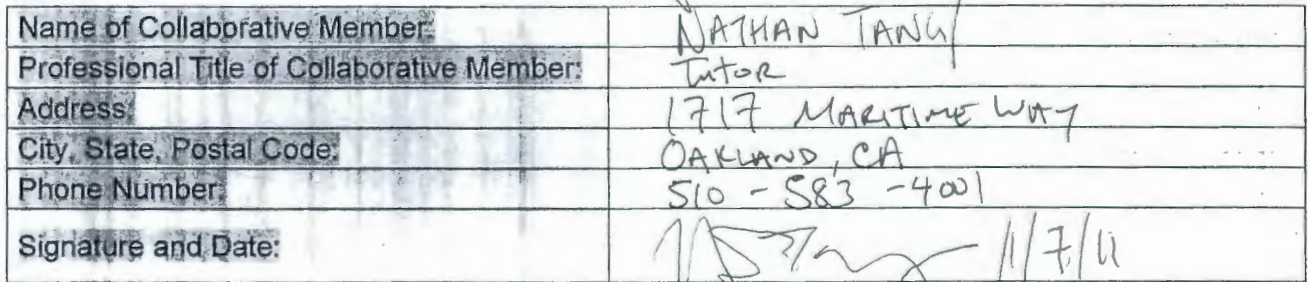 Name of Collaborative Member: NATHAN TANG
Professional Title of Collaborative Member: Tutor
Address: 1717 MARITIME WAY
City, State, Postal Code: OAKLAND, CA
Phone Number: 510-583-4001
Signature and Date: 1/7/11